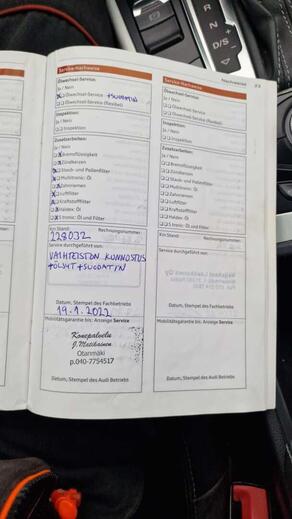 Service-Nachweise
Ölwechsel-Service:
Ja / Nein
Ölwechsel-Service +SUODATIN
Ölwechsel-Service (flexibel)
Inspektion:
Ja / Nein
Inspektion
Zusatzarbeiten:
Ja / Nein
Bremsflüssigkeit
Zündkerzen
Staub- und Pollenfilter
Multitronic: Öl
Zahnriemen
Luftfilter
Kraftstofffilter
Haldex: Öl
S tronic: Öl und Filter
Km Stand: Rechnungsnummer:
228032
Service durchgeführt von:
VAIHTEISTON KUNNOSTUS
+ÖLJYT+SUODATIN
Datum, Stempel des Fachbetriebs
19.1.2022
Mobilitätsgarantie bis: Anzeige Service
Konepalvelu
J. Matikainen
Otanmäki
p.040-7754517
Datum, Stempel des Audi Betriebs
Service-Nachweise
Ölwechsel-Service:
Ja / Nein
Ölwechsel-Service
Ölwechsel-Service (flexibel)
Inspektion:
Ja / Nein
Inspektion
Zusatzarbeiten:
Ja / Nein
Bremsflüssigkeit
Zündkerzen
Staub- und Pollenfilter
Multitronic: Öl
Zahnriemen
Luftfilter
Kraftstofffilter
Haldex: Öl
S tronic: Öl und Filter
Km Stand: Rechnungsnummer:
Service durchgeführt von:
Datum, Stempel des Fachbetriebs
Mobilitätsgarantie bis: Anzeige Service
Datum, Stempel des Audi Betriebs
R
N
D/S